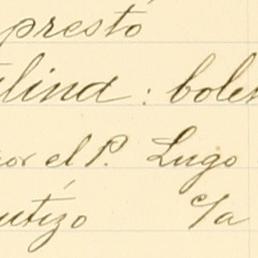 prestó
lina: bole
por el P. Lugo
utizo c/a